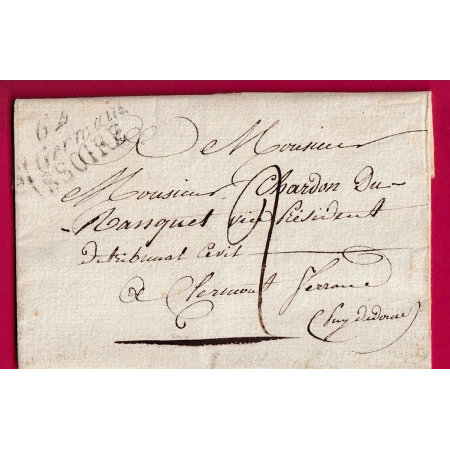 64
St Germain
ISSOIRE
A Monsieur
Monsieur Chardon Du-
-Ranquet vice Président
du tribunal Civil
a Clermont ferrand
(Puy de dome)